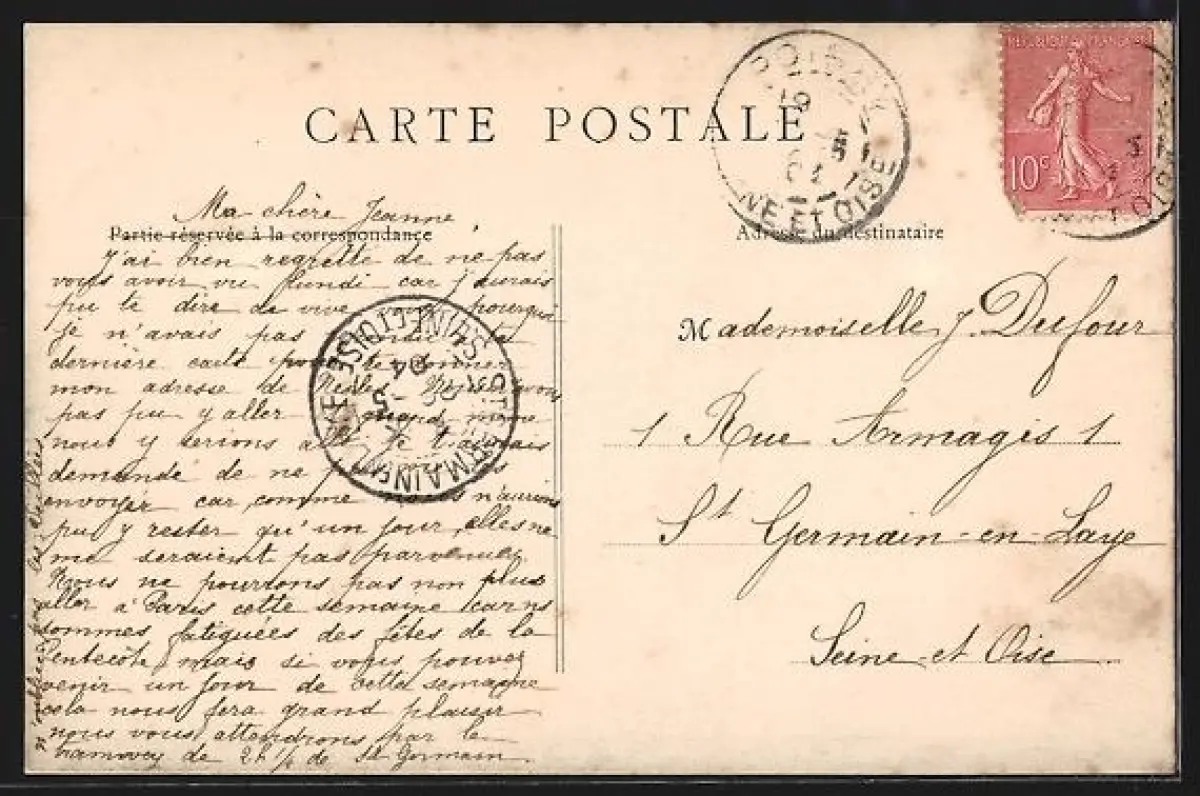 CARTE POSTALE
Partie réservée à la correspondance
Adresse du destinataire
REPUBLIQUE FRANÇAISE
10c
POISSY
19
5
04
NE ET OISE
OISE
Ma chère Jeanne
J'ai bien regretté de ne pas
vous avoir vu lundi car j'aurais
pu te dire de vive pourquoi
Je n'avais pas
dernière carte donner
mon adresse de Nesles
pas pu y aller quand même
nous y serions je t'aurais
demandé de ne
envoyer car comme n'aurions
pu y rester qu'un jour, elles ne
me seraient pas parvenues.
Nous ne pourrons pas non plus
aller à Paris cette semaine car ns
sommes fatiguées des fêtes de la
Pentecôte, mais si vous pouvez
venir un jour de cette semaine
cela nous fera grand plaisir
nous vous attendrons par le
tramway de 2h ½ de St Germain.
n'oubliez pas les
ST GERMAIN EN L
SEINE ET OISE
5
04
Mademoiselle J. Dufour
1 Rue Armagis 1
St Germain-en-Laye
Seine-et-Oise